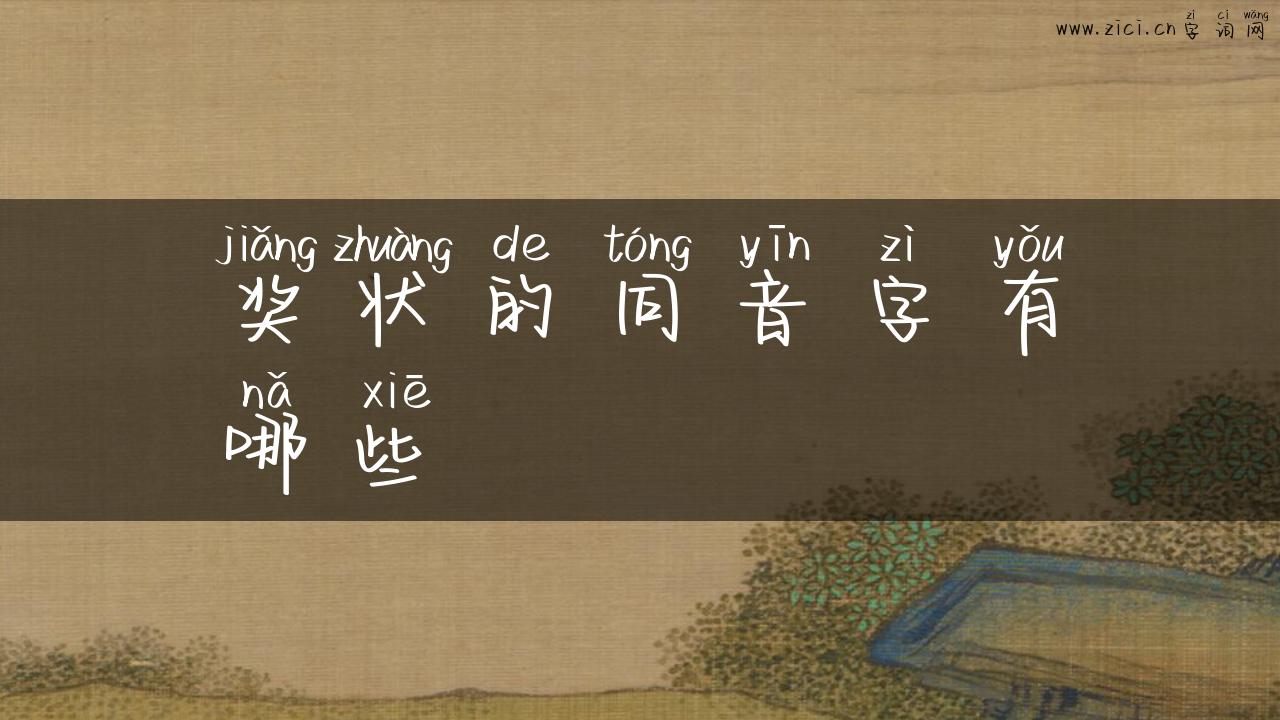 zì cí wǎng
www.zici.cn 字词网
jiǎng zhuàng de tóng yīn zì yǒu
奖状的同音字有
nǎ xiē
哪些